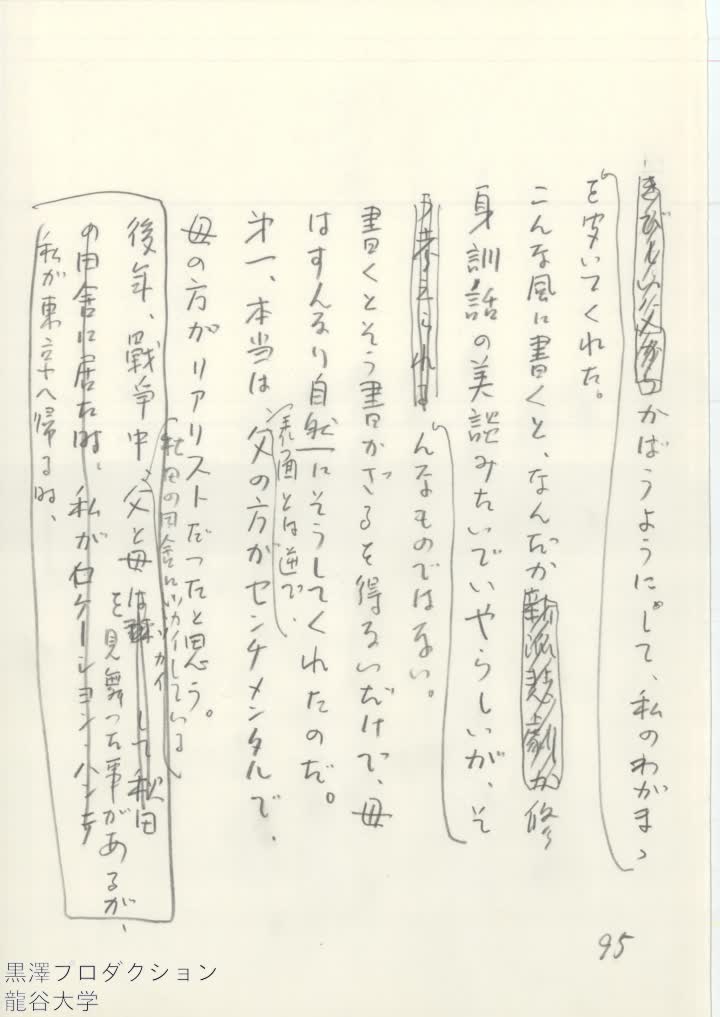 きびしい父からかばうようにして、私のわがまゝ
を聞いてくれた。
こんな風に書くと、なんだか新派悲劇か修
身訓話の美談みたいでいやらしいが、そ
う考えられる んなものではない。
書くとそう書かざるを得ないだけで、母
はすんなり自然にそうしてくれたのだ。
第一、本当は父の方がセンチメンタルで、
表面とは逆で、
母の方がリアリストだったと思う。
秋田の田舎にソカイしている
後年、戰争中、父と母は ソカイ して秋田
を見舞った事があるが、
の田舎に居た時、私がロケーション・ハンチ
私が東京へ帰る時、
95
黒澤プロダクション
龍谷大学